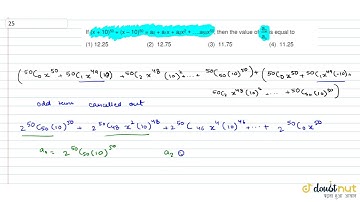 25
If (x + 10)⁵⁰ + (x – 10)⁵⁰ = a₀ + a₁x + a₂x² + .... a₅₀x⁵⁰ then the value of a₂/a₀ is equal to
(1) 12.25 (2) 12.75 (3) 11.75 (4) 11.25
(⁵⁰C₀ x⁵⁰ + ⁵⁰C₁ x⁴⁹ (10) + ⁵⁰C₂ x⁴⁸ (10)² + ... + ⁵⁰C₅₀ (10)⁵⁰) + (⁵⁰C₀ x⁵⁰ + ⁵⁰C₁ x⁴⁹ (-10) +
⁵⁰C₂ x⁴⁸ (10)² ... + ⁵⁰C₅₀ (10)⁵⁰)
odd term cancelled out
2 ⁵⁰C₅₀ (10)⁵⁰ + 2 ⁵⁰C₄₈ x² (10)⁴⁸ + 2 ⁵⁰C₄₆ x⁴ (10)⁴⁶ + ... + 2 ⁵⁰C₀ x⁵⁰
a₀ = 2 ⁵⁰C₅₀ (10)⁵⁰ a₂
doubtnut